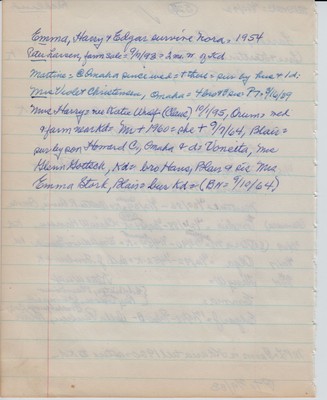 Emma, Harry & Edgar survive Nora = 1954
Peter Larsen, farm sale = 9/11/93 = 2 mi n of Kd
Martine = C Omaha since wed = & third = sur by hus & 1 d:
Mrs Violet Christensen, Omaha + 6 gch & sis P7 = 9/16/89
Mrs Harry = nee Katie Wulf (Claus) 10/1/95, Orum = wed
& farm near Kd = Mr + 1960 = she + 9/7/64, Blair =
sur by son Howard C, Omaha & ds Vonetta, Mrs
Glenn Gottsch, Kd = bro Hans, Blair & sis Mrs
Emma Stork, Blair = bur Kd = (BN = 9/10/64)